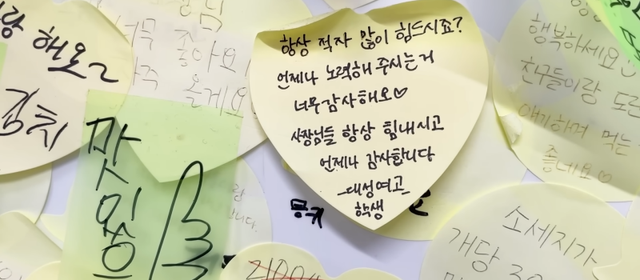 항상 적자 많이 힘드시죠?
언제나 노력해 주시는거
너무 감사해요♡
사장님들 항상 힘내시고
언제나 감사합니다
-대성여고
학생
랑 해요~
김치
님
너무 좋아요
올게요
맛있슴
행복하세요
친구들이랑
얘기하며 먹는
좋네요♡
소세지가
개당